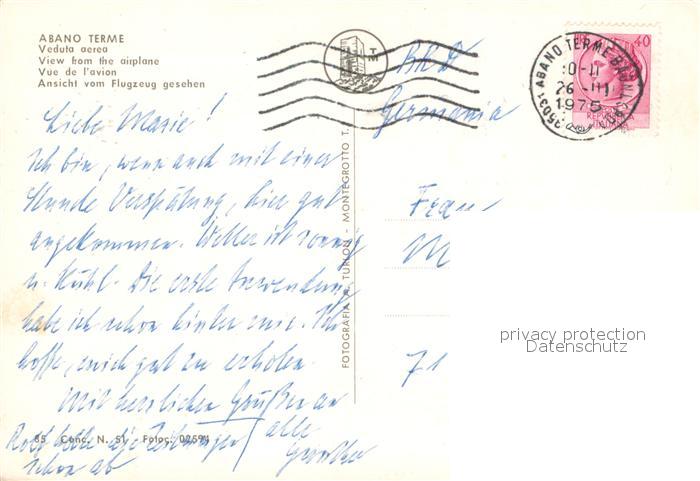 ABANO TERME
Veduta aerea
View from the airplane
Vue de l'avion
Ansicht vom Flugzeug gesehen
TM
BRD
Germania
40
35031 ABANO TERME-BAGNI
10-11
26-III
1975
Liebe Marie!
Ich bin, wenn auch mit einer
Stunde Verspätung, hier gut
angekommen. Wetter ist sonnig
u. kühl. Die erste Anwendung
habe ich schon hinter mir. Ich
hoffe, mich gut zu erholen.
Mit herzlichen Grüßen an
alle
Günther
Rolf holte die Zeitungen
schon ab
Frau
M
71
FOTOGRAFIA A. TURLON - MONTEGROTTO T.
85 Conc. N. 51 - Fotoc. 02594
privacy protection
Datenschutz